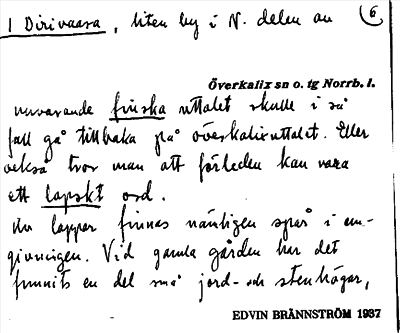 1 Dirivaara, liten by i N. delen av (6
Överkalix sn o. tg Norrb. l.
nuvarande finska uttalet skulle i så
fall gå tillbaka på överkalixuttalet. Eller
också tror man att förleden kan vara
ett lapskt ord.
Av lappar finnas nämligen spår i om-
givningen. Vid gamla gården har det
funnits en del små jord- och stenhögar,
EDVIN BRÄNNSTRÖM 1937